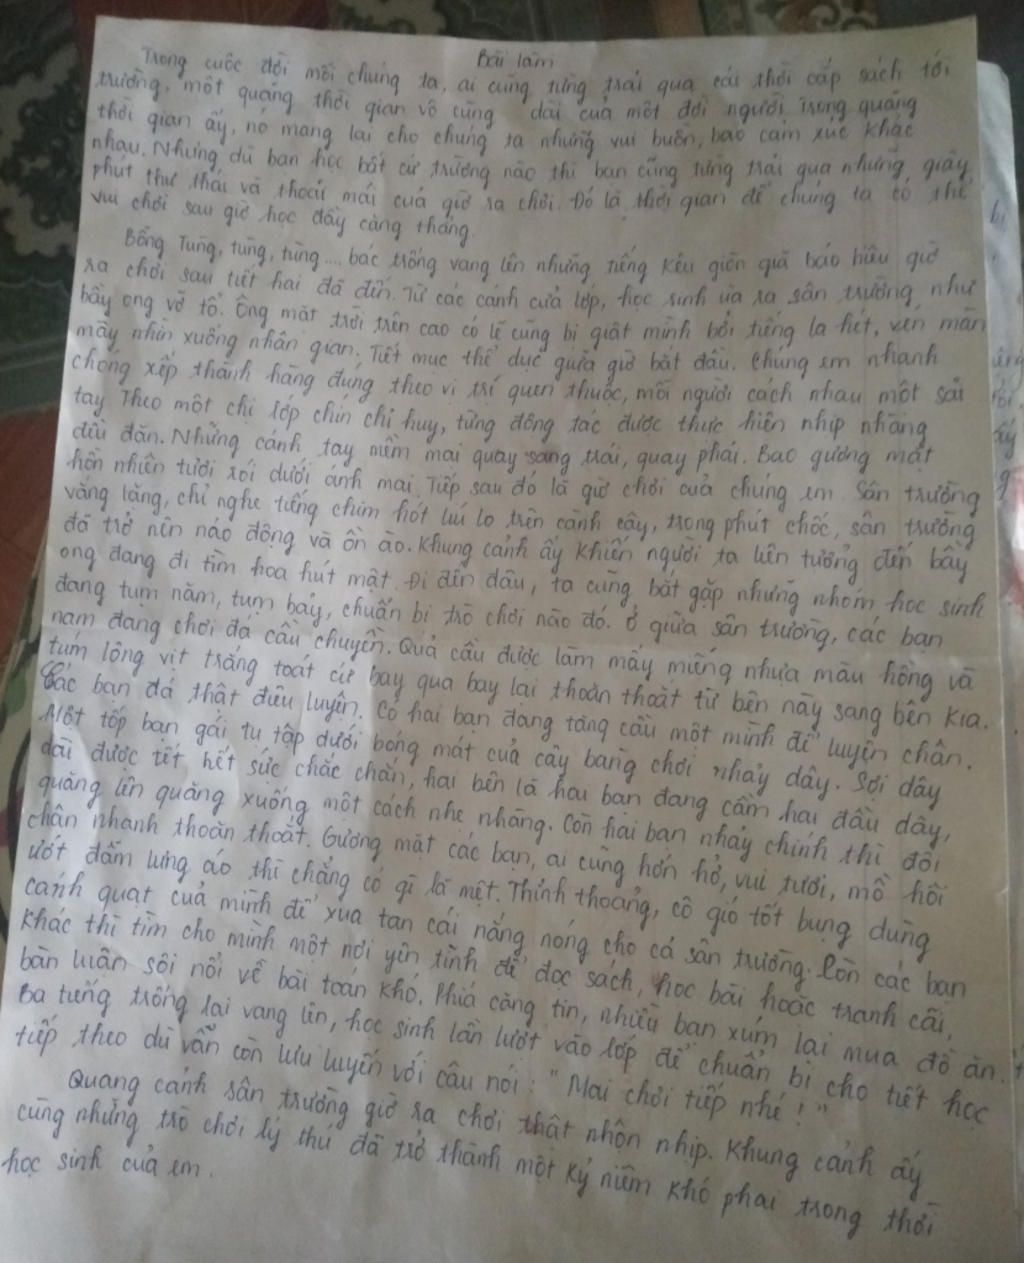 Bài làm
Trong cuộc đời mỗi chúng ta, ai cũng từng trải qua cái thời cắp sách tới
trường, một quãng thời gian vô cùng dài của một đời người. Trong quãng
thời gian ấy, nó mang lại cho chúng ta những vui buồn, bao cảm xúc khác
nhau. Nhưng dù bạn học bất cứ trường nào thì bạn cũng từng trải qua những giây
phút thư thái và thoải mái của giờ ra chơi. Đó là thời gian để chúng ta có thể
vui chơi sau giờ học đầy căng thẳng.
Bỗng Tùng, tùng, tùng.... bác trống vang lên những tiếng kêu giòn giã báo hiệu giờ
ra chơi sau tiết hai đã đến. Từ các cánh cửa lớp, học sinh ùa ra sân trường như
bầy ong vỡ tổ. Ông mặt trời trên cao có lẽ cũng bị giật mình bởi tiếng la hét, vén màn
mây nhìn xuống nhân gian. Tiết mục thể dục giữa giờ bắt đầu. Chúng em nhanh
chóng xếp thành hàng đứng theo vị trí quen thuộc, mỗi người cách nhau một sải
tay Theo một chị lớp chín chỉ huy, từng động tác được thực hiện nhịp nhàng
đều đặn. Những cánh tay mềm mại quay sang trái, quay phải. Bao gương mặt
hồn nhiên tươi rói dưới ánh mai. Tiếp sau đó là giờ chơi của chúng em. Sân trường
vắng lặng, chỉ nghe tiếng chim hót líu lo trên cành cây, trong phút chốc, sân trường
đã trở nên náo động và ồn ào. Khung cảnh ấy khiến người ta liên tưởng đến bầy
ong đang đi tìm hoa hút mật. Đi đến đâu, ta cũng bắt gặp những nhóm học sinh
đang tụm năm, tụm bảy, chuẩn bị trò chơi nào đó. Ở giữa sân trường, các bạn
nam đang chơi đá cầu chuyền. Quả cầu được làm mấy miếng nhựa màu hồng và
túm lông vịt trắng toát cứ bay qua bay lại thoăn thoắt từ bên này sang bên kia.
Các bạn đá thật điêu luyện. Có hai bạn đang tâng cầu một mình để luyện chân.
Một tốp bạn gái tụ tập dưới bóng mát của cây bàng chơi nhảy dây. Sợi dây
dài được tết hết sức chắc chắn, hai bên là hai bạn đang cầm hai đầu dây,
quăng lên quăng xuống một cách nhẹ nhàng. Còn hai bạn nhảy chính thì đôi
chân nhanh thoăn thoắt. Gương mặt các bạn, ai cũng hớn hở, vui tươi, mồ hôi
ướt đẫm lưng áo thì chẳng có gì là mệt. Thỉnh thoảng, cô gió tốt bụng dùng
cánh quạt của mình để xua tan cái nắng nóng cho cả sân trường. Còn các bạn
khác thì tìm cho mình một nơi yên tĩnh để đọc sách, học bài hoặc tranh cãi,
bàn luận sôi nổi về bài toán khó. Phía căng tin, nhiều bạn xúm lại mua đồ ăn.
Ba tiếng trống lại vang lên, học sinh lần lượt vào lớp để chuẩn bị cho tiết học
tiếp theo dù vẫn còn lưu luyến với câu nói: "Mai chơi tiếp nhé!"
Quang cảnh sân trường giờ ra chơi thật nhộn nhịp. Khung cảnh ấy
cùng những trò chơi lý thú đã trở thành một kỷ niệm khó phai trong thời
học sinh của em.